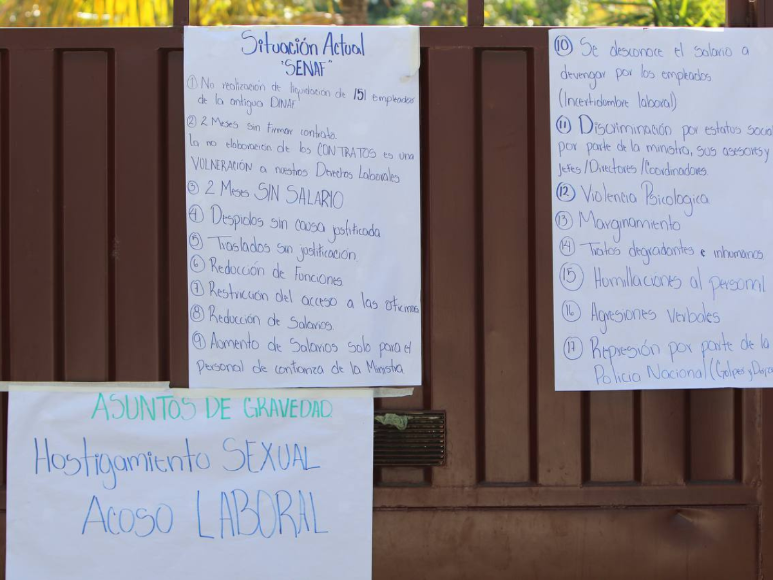 Situación Actual
"SENAF"
① No realización de liquidación de 151 empleados
de la antigua DINAF
② 2 Meses sin firmar contrato.
la no elaboración de los CONTRATOS es una
VULNERACIÓN a nuestros Derechos Laborales
③ 2 Meses SIN SALARIO
④ Despidos sin causa justificada
⑤ Traslados sin justificación
⑥ Reducción de Funciones
⑦ Restricción del acceso a las oficinas
⑧ Reducción de Salarios
⑨ Aumento de Salarios solo para el
Personal de confianza de la Ministra
⑩ Se desconoce el salario a
devengar por los empleados
(Incertidumbre laboral)
⑪ Discriminación por estatus social
por parte de la ministra, sus asesores y
Jefes/Directores/Coordinadores
⑫ Violencia Psicologica
⑬ Marginamiento
⑭ Tratos degradantes e inhumanos
⑮ Humillaciones al personal
⑯ Agresiones Verbales
⑰ Represión por parte de la
Policia Nacional (Golpes y
ASUNTOS DE GRAVEDAD
Hostigamiento SEXUAL
Acoso LABORAL